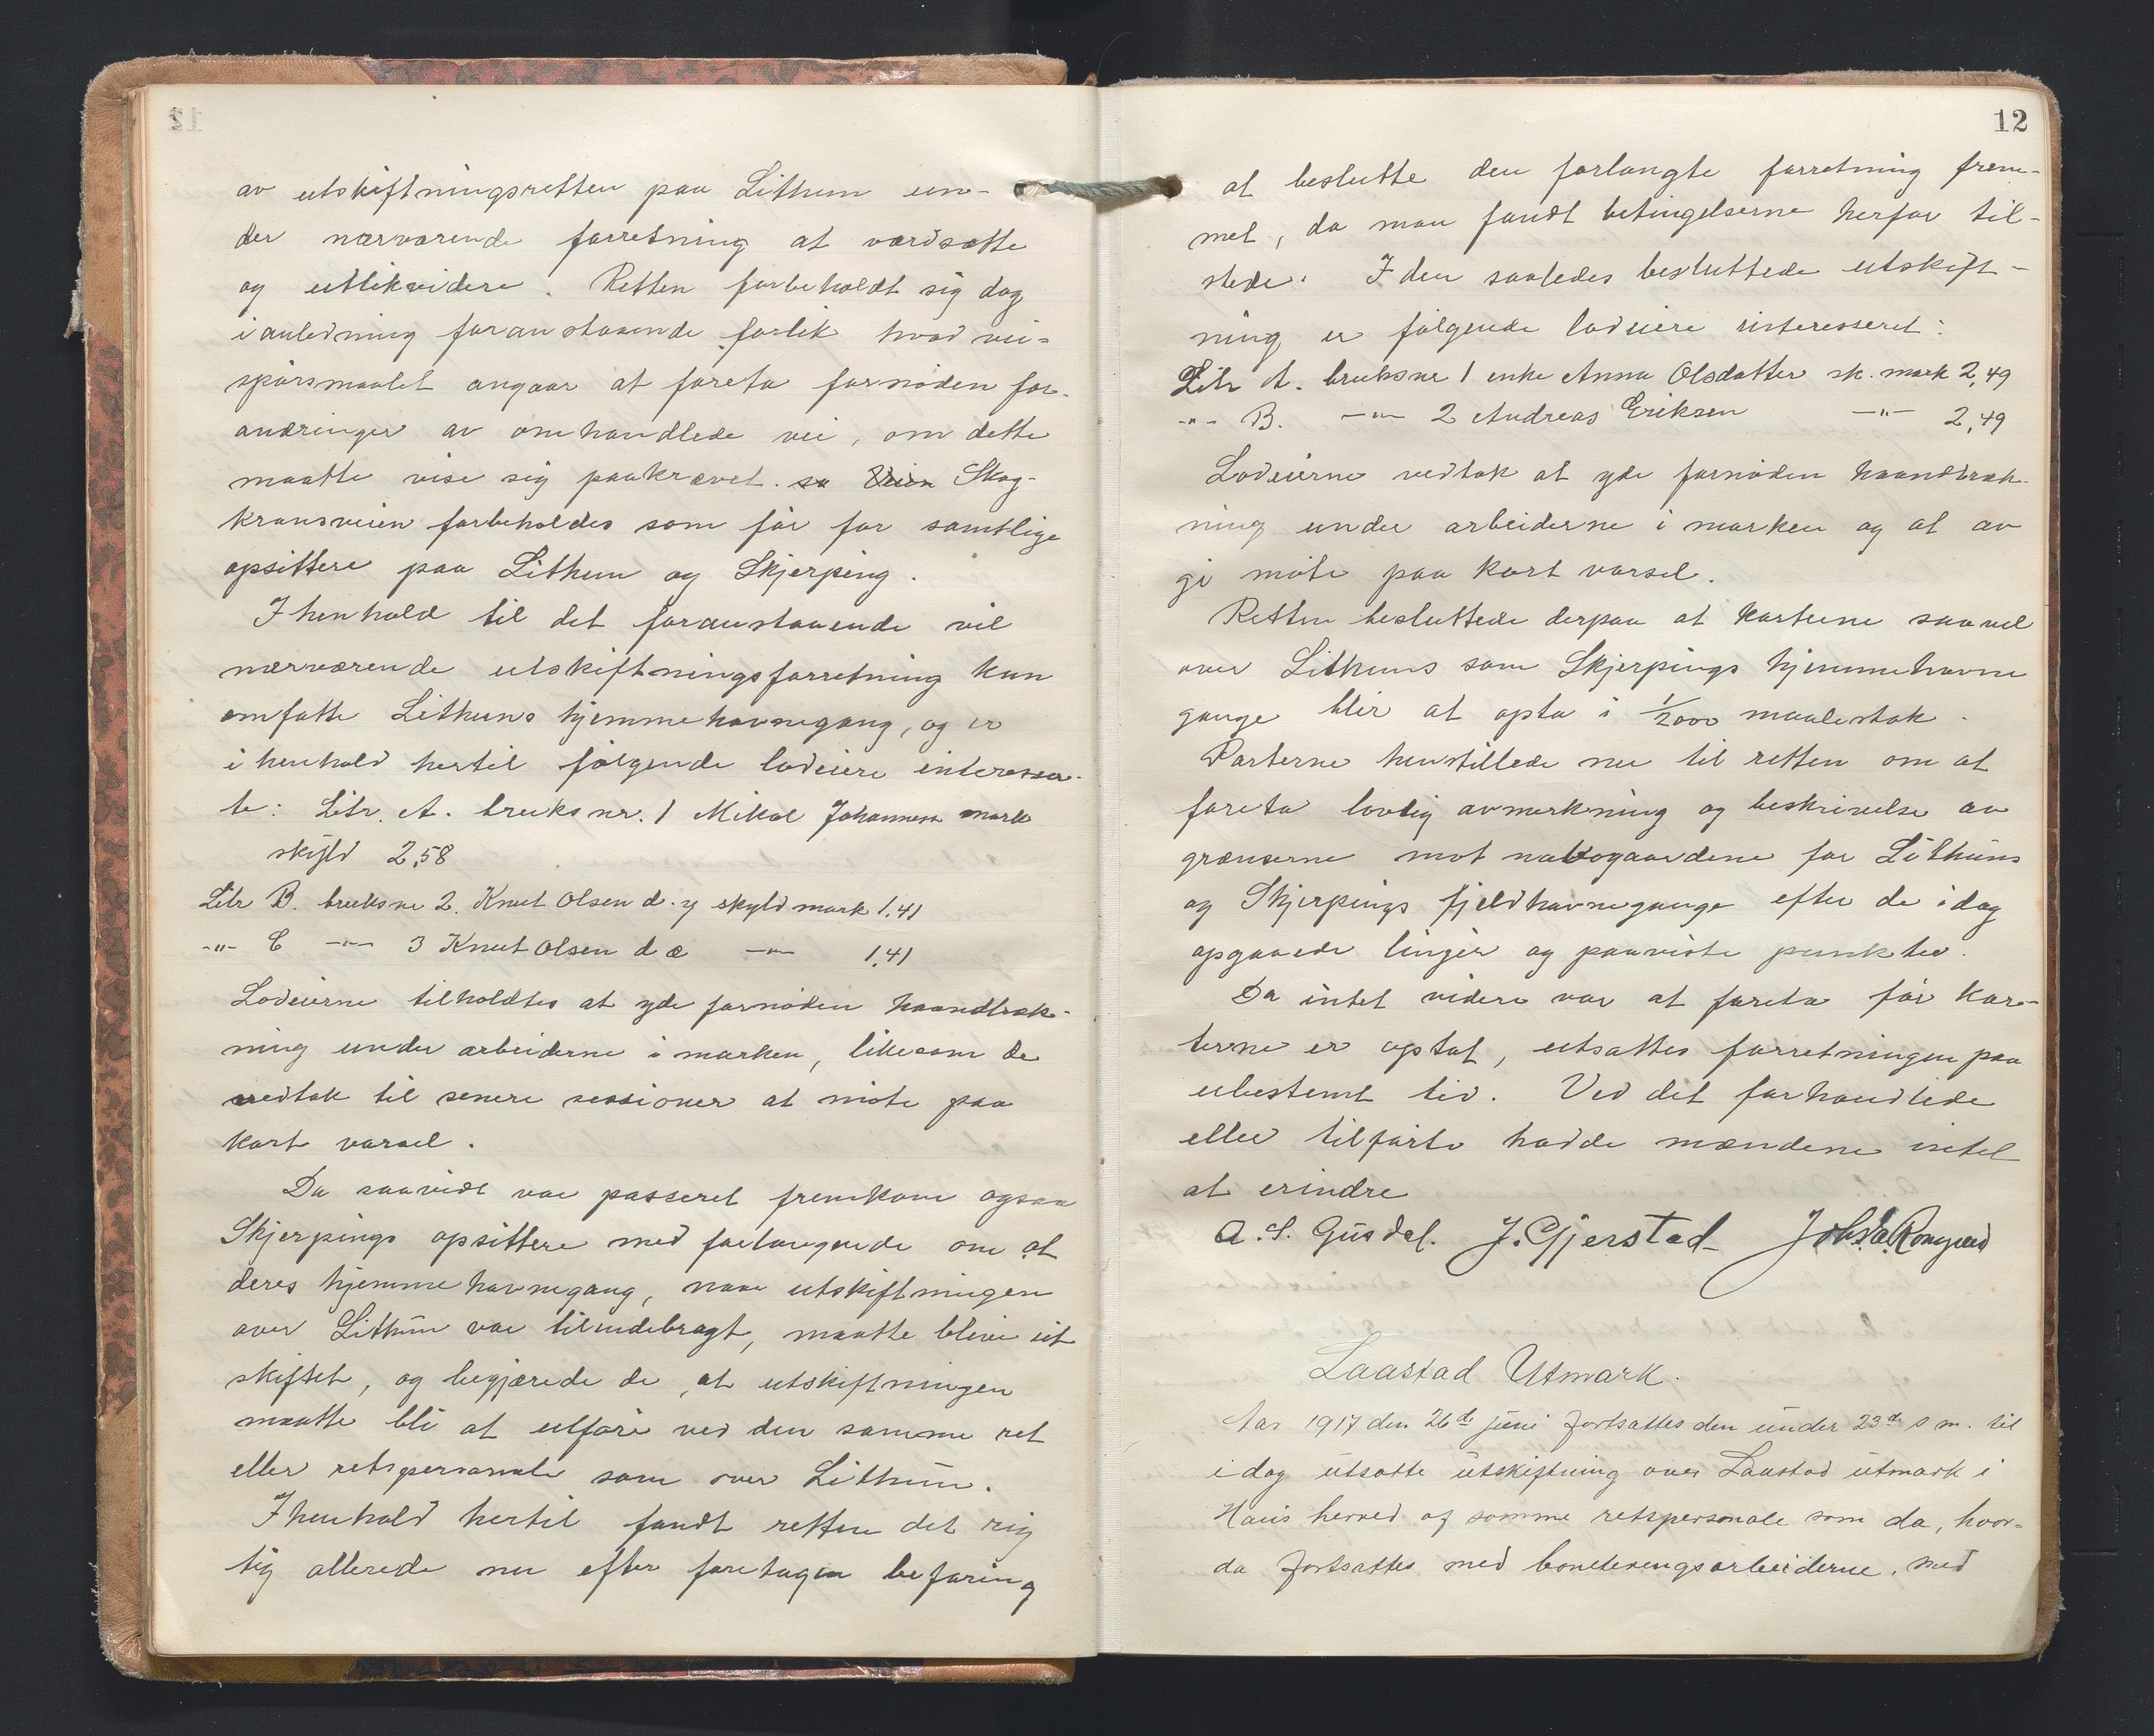 av utskiftningsretten paa Lithun un-
der nærværende forretning at værdsætte
og utlikvidere. Retten forbeholdt sig dog
i anledning foranstaaende forlik hvad vei-
spørsmaalet angaar at foreta fornøden for-
andringer av omhandlede vei, om dette
maatte vise sig paakrævet. Skog-
kransveien forbeholdes som før for samtlige
opsittere paa Lithun og Skjerping.
I henhold til det foranstaaende vil
nærværende utskiftningsforretning kun
omfatte Lithuns hjemmehavnegang, og er
i henhold hertil følgende lodeiere interesser-
te: Litr. A. bruksnr. 1 Mikal Johannesen mark
skyld 2,58
Litr B. bruksnr 2. Knut Olsen d. y skyld mark 1,41
-"- C -"- 3 Knut Olsen d æ -"- 1,41
Lodeierne tilholdtes at yde fornøden haandtræk-
ning under arbeiderne i marken, likesom de
vedtok til senere sessioner at møte paa
kort varsel.
Da saavidt var passeret fremkom ogsaa
Skjerpings opsittere med forlangende om at
deres hjemmehavnegang, naar utskiftningen
over Lithun var tilendebragt, maatte blive ut
skiftet, og begjærede de at utskiftningen
maatte bli at utføre ved den samme ret
eller retspersonale som over Lithun.
I henhold hertil fandt retten det rig
tig allerede nu efter foretagen befaring
12
at beslutte den forlangte forretning frem-
met, da man fandt betingelserne herfor til-
stede. I den saaledes besluttede utskift-
ning er følgende lodeiere interesseret:
Litr A. bruksnr 1 enke Anna Olsdatter sk. mark 2,49
-"- B. -"- 2 Andreas Eriksen -"- 2,49
Lodeierne vedtok at yde fornøden haandtræk-
ning under arbeiderne i marken og at av
gi møte paa kort varsel.
Retten besluttede derpaa at karterne saavel
over Lithuns som Skjerpings hjemmehavne
gange blir at opta i 1/2000 maalestok.
Parterne henstillede nu til retten om at
foreta lovlig avmerkning og beskrivelse av
grænserne mot nabogaardene for Lithuns
og Skjerpings fjeldhavnegange efter de idag
opgaaede linjer og paaviste punkter.
Da intet videre var at foreta før kar-
terne er optat, utsattes forretningen paa
ubestemt tid. Ved det forhandlede
eller tilførte hadde mændene intet
at erindre
A. S. Gusdal. J. Gjerstad
Laastad Utmark.
Aar 1917 den 26de juni fortsattes den under 23de s m. til
idag utsatte utskiftning over Laastad utmark i
Haus herred af samme retspersonale som da, hvor-
da fortsattes med boneteringsarbeiderne, med